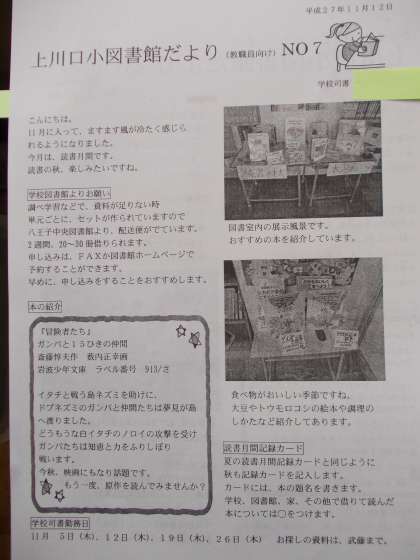 平成27年11月12日
上川口小図書館だより（教職員向け）NO7
学校司書
こんにちは。
11月に入って、ますます風が冷たく感じら
れるようになりました。
今月は、読書月間です。
読書の秋、楽しみたいですね。
学校図書館よりお願い
調べ学習などで、資料が足りない時
単元ごとに、セットが作られていますので
八王子中央図書館より、配送便がでています。
2週間、20～30冊借りられます。
申し込みは、FAXか図書館ホームページで
予約することができます。
早めに、申し込みをすることをおすすめします。
本の紹介
『冒険者たち』
ガンバと15ひきの仲間
斎藤惇夫作　薮内正幸画
岩波少年文庫　ラベル番号　913/さ
イタチと戦う島ネズミを助けに、
ドブネズミのガンバと仲間たちは夢見が島
へ渡りました。
どうもうな白イタチのノロイの攻撃を受け
ガンバたちは知恵と力をふりしぼり
戦います。
今秋、映画にもなり話題です。
もう一度、原作を読んでみませんか？
図書室内の展示風景です。
おすすめの本を紹介しています。
食べ物がおいしい季節ですね。
大豆やトウモロコシの絵本や調理の
しかたなど紹介してあります。
読書月間記録カード
夏の読書月間記録カードと同じように
秋も記録カードを記入します。
カードには、本の題名を書きます。
学校、図書館、家、その他で借りて読んだ
本については○をつけます。
学校司書勤務日
11月　5日(木)、12日(木)、19日(木)、26日(木)　お探しの資料は、武藤まで。